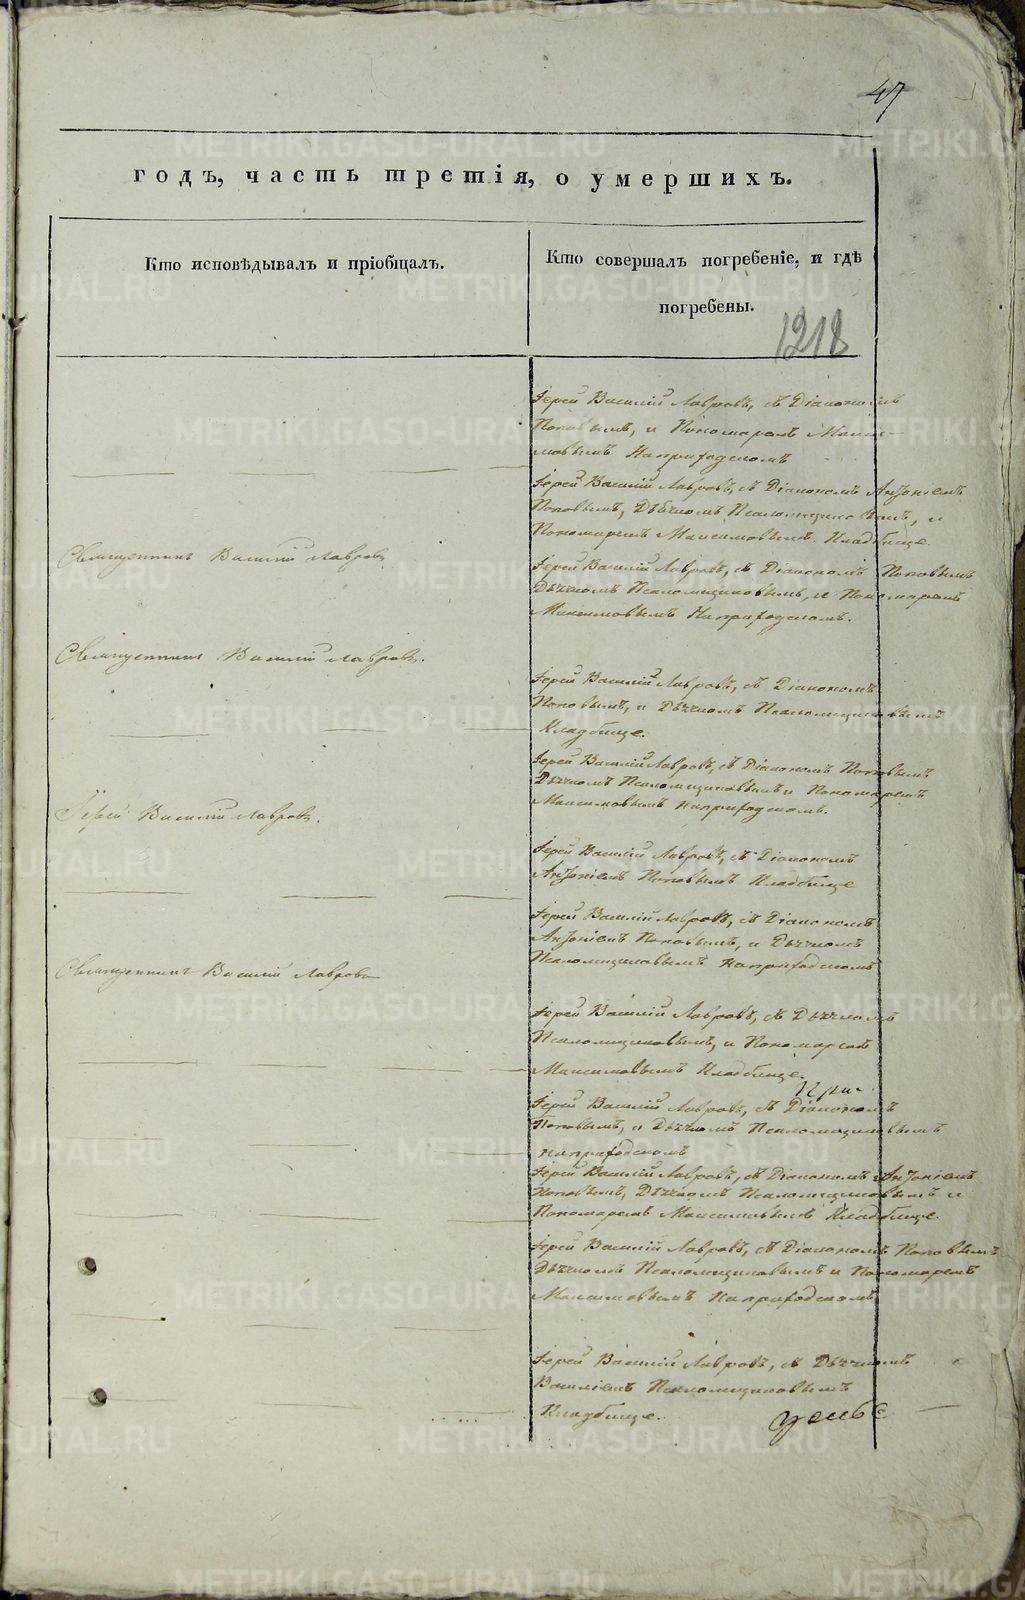 47
годъ, часть третія, о умершихъ.
Кто исповѣдывалъ и пріобщалъ.
Кто совершалъ погребеніе, и гдѣ
погребены.
1218
Іерей Василій Лавровъ, съ Діакономъ
Поповымъ, и Пономаремъ Макси-
мовымъ На приходскомъ
Іерей Василій Лавровъ, съ Діакономъ Анфоніемъ
Поповымъ, Дьячкомъ Псаломщиковымъ, и
Пономаремъ Максимовымъ. Кладбище.
Священникъ Василій Лавровъ
Іерей Василій Лавровъ, съ Діакономъ Поповымъ
Дьячкомъ Псаломщиковымъ, и Пономаремъ
Максимовымъ На приходскомъ.
Священникъ Василій Лавровъ.
Іерей Василій Лавровъ, съ Діакономъ
Поповымъ, и Дьячкомъ Псаломщиковымъ
Кладбище.
Іерей Василій Лавровъ, съ Діакономъ Поповымъ
Дьячкомъ Псаломщиковымъ и Пономаремъ
Максимовымъ на приходскомъ.
Іерей Василій Лавровъ.
Іерей Василій Лавровъ, съ Діакономъ
Анфоніемъ Поповымъ Кладбище
Іерей Василій Лавровъ, съ Діакономъ
Анфоніемъ Поповымъ, и Дьячкомъ
Псаломщиковымъ. на приходскомъ
Священникъ Василій Лавровъ
Іерей Василій Лавровъ, съ Дьячкомъ
Псаломщиковымъ, и Пономаремъ
Максимовымъ Кладбище.
Іерей Василій Лавровъ, съ Діакономъ
Поповымъ, и Дьячкомъ Псаломщиковымъ
на приходскомъ
Іерей Василій Лавровъ, съ Діакономъ Анфоніемъ
Поповымъ, Дьячкомъ Псаломщиковымъ и
Пономаремъ Максимовымъ Кладбище.
Іерей Василій Лавровъ, съ Діакономъ Поповымъ
Дьячкомъ Псаломщиковымъ и Пономаремъ
Максимовымъ На приходскомъ
Іерей Василій Лавровъ, съ Дьячкомъ
Василіемъ Псаломщиковымъ
Кладбище.
METRIKI.GASO-URAL.RU